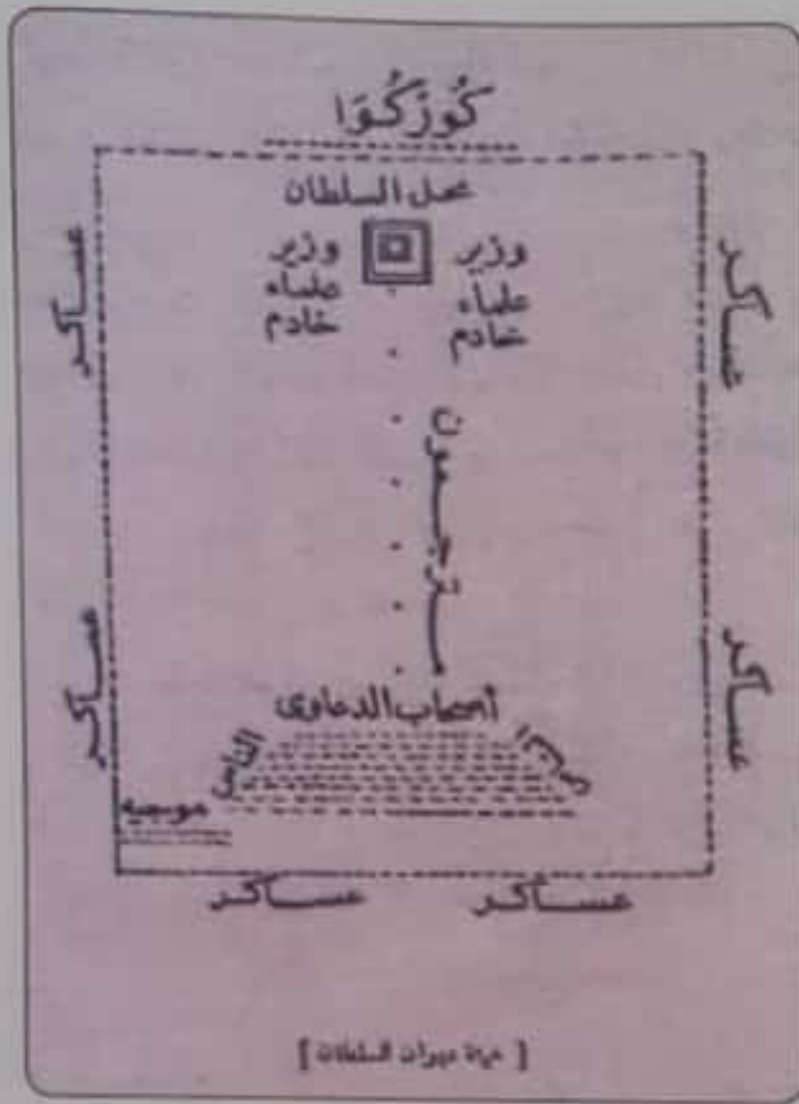 كُوزكُوَا
محل السلطان
وزير وزير
علماء علماء
خادم خادم
عساكر عساكر
مترجمون
عساكر عساكر
أصحاب الدعاوى
الناس
موجيه
عساكر عساكر
[ هيئة ديوان السلطان ]